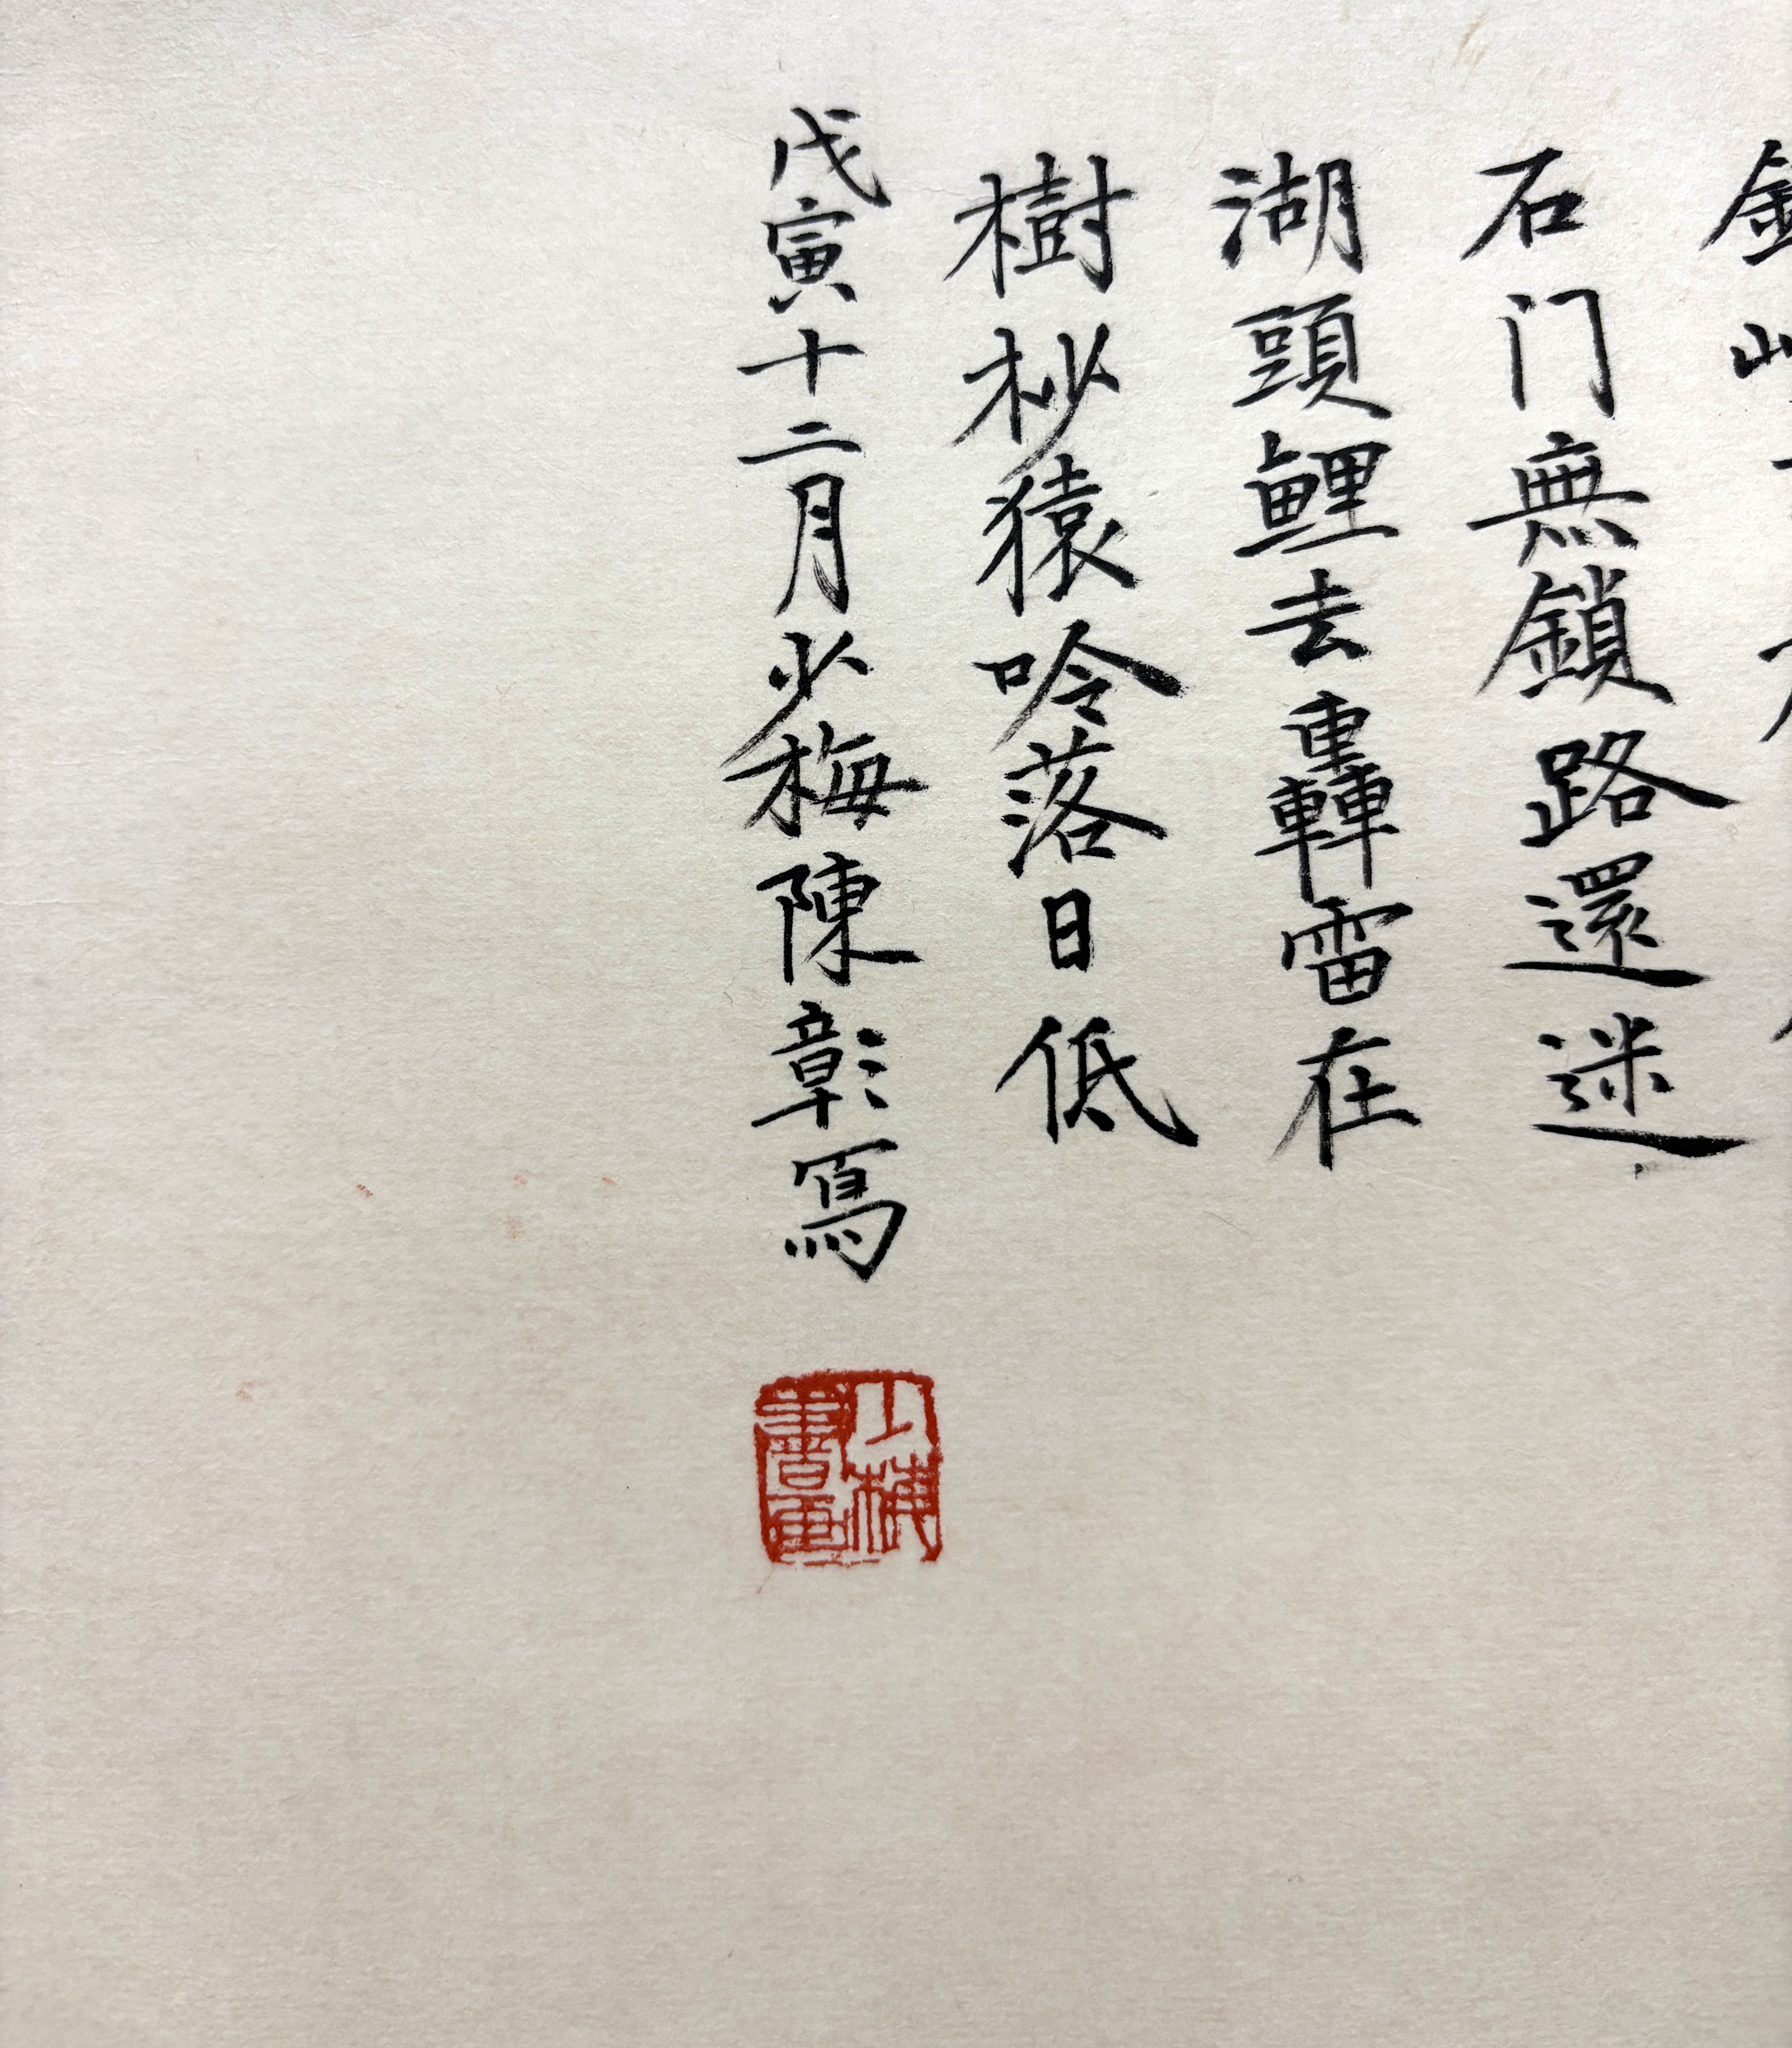 石门無鎖路還迷
湖頭鲤去轟雷在
樹杪猿吟落日低
戊寅十二月少梅陳彰寫
少梅
書畫